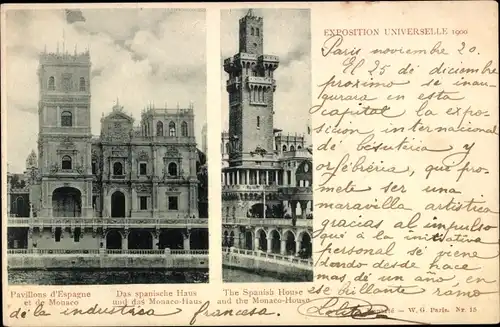 EXPOSITION UNIVERSELLE 1900
Paris noviembre 20.
El 25 de diciembre
próximo se inau-
gurará en esta
capital la expo-
sición internacional
de bisutería y
orfebrería, que pro-
mete ser una
maravilla artística
gracias al impulso
que á la iniciativa
personal se viene
dando desde hace
mas de un año, en
ese brillante ramo
de la industria francesa.
Lolita
Pavillons d'Espagne
et de Monaco
Das spanische Haus
und das Monaco-Haus
The Spanish House
and the Monaco-House
W. G. Paris. Nr. 15